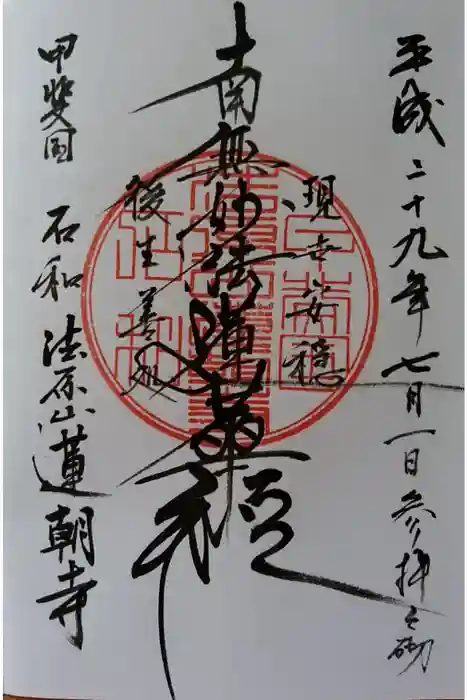 平成二十九年七月一日参拝之砌
現世安穏
南無妙法蓮華経
後生善処
甲斐国 石和 法石山蓮朝寺